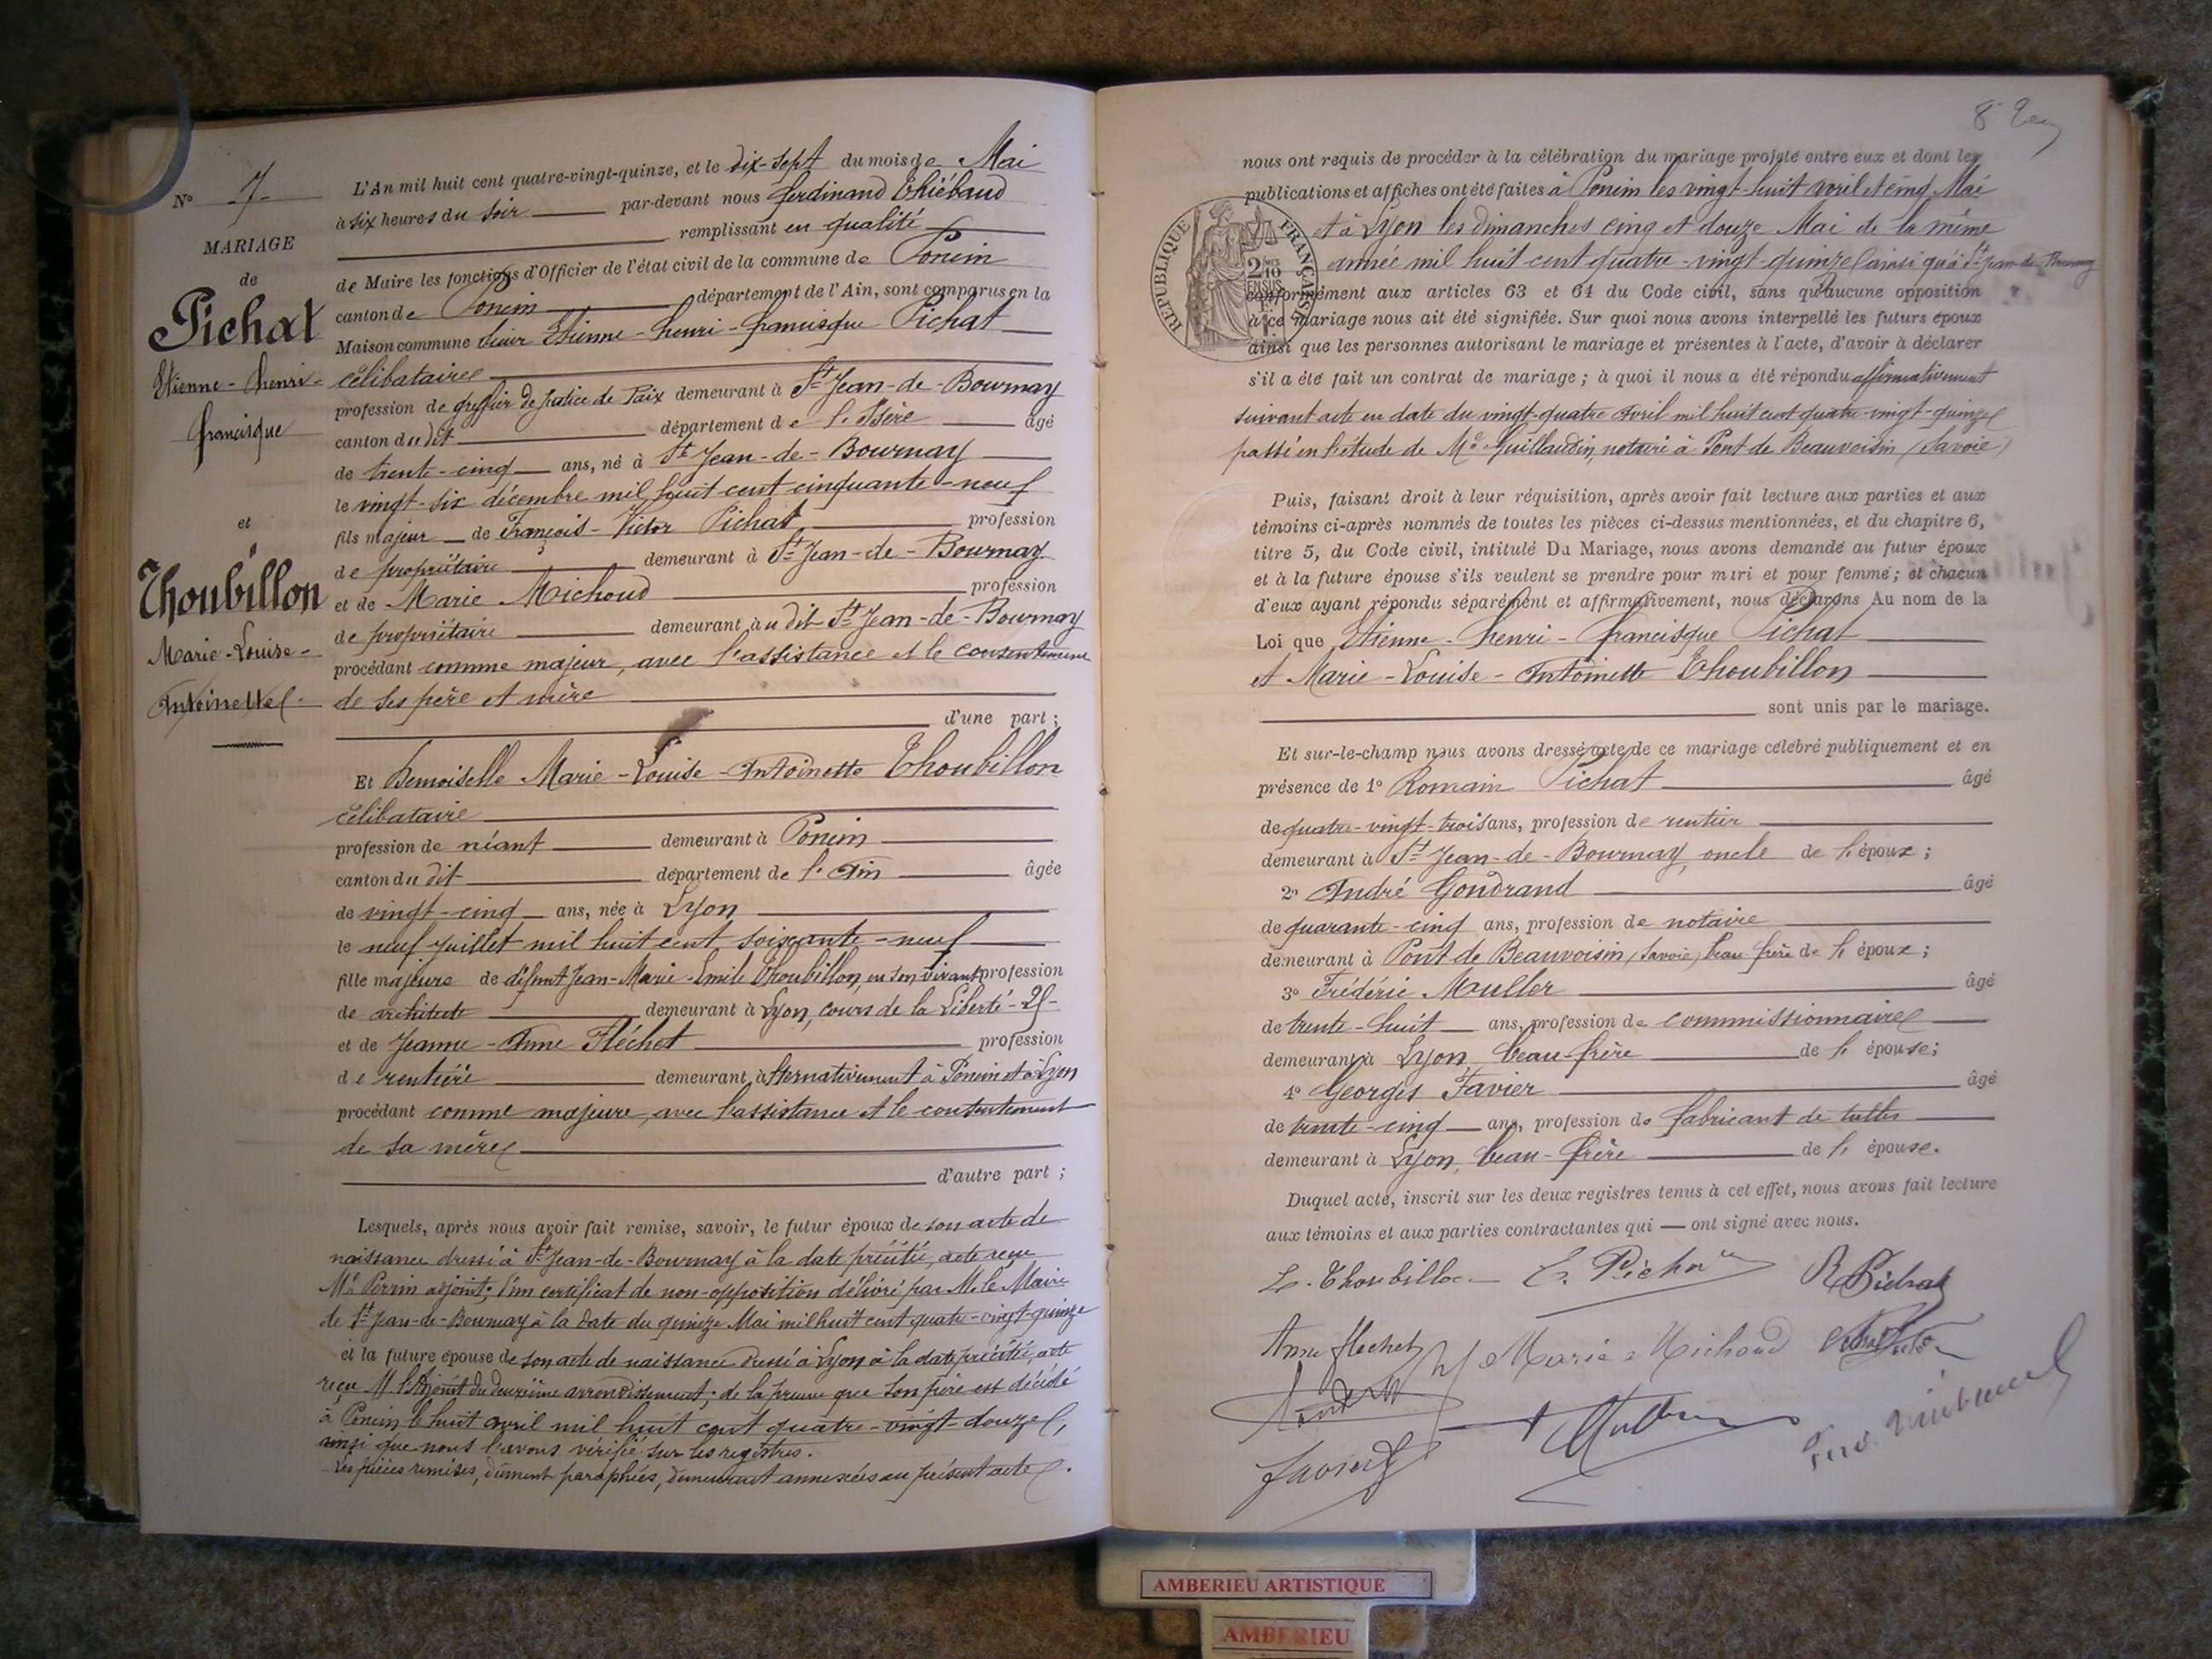 N° 7
MARIAGE
de
Pichat
Etienne-Henri-
francisque
et
Thoubillon
Marie-Louise-
Antoinette
L'An mil huit cent quatre-vingt-quinze, et le dix-sept du mois de Mai
à six heures du soir par-devant nous ferdinand Thiébaud
remplissant en qualité
de Maire les fonctions d'Officier de l'état civil de la commune de Poncin
canton de Poncin département de l'Ain, sont comparus en la
Maison commune Sieur Etienne-Henri-francisque Pichat
célibataire
profession de greffier de Justice de Paix demeurant à St Jean-de-Bournay
canton du dit département de l'Isère âgé
de trente-cinq ans, né à St Jean-de-Bournay
le vingt-six décembre mil huit cent cinquante-neuf
fils majeur de François-Victor Pichat profession
de propriétaire demeurant à St Jean-de-Bournay
et de Marie Michoud profession
de propriétaire demeurant au dit St Jean-de-Bournay
procédant comme majeur, avec l'assistance et le consentement
de ses père et mère
d'une part ;
Et Demoiselle Marie-Louise-Antoinette Thoubillon
célibataire
profession de néant demeurant à Poncin
canton du dit département de l'Ain âgée
de vingt-cinq ans, née à Lyon
le neuf Juillet mil huit cent soixante-neuf
fille majeure de défunt Jean-Marie-Emile Thoubillon, en son vivant profession
de architecte demeurant à Lyon, cours de la Liberté
et de Jeanne-Anne Fléchet profession
de rentière demeurant alternativement à Poncin et à Lyon
procédant comme majeure, avec l'assistance et le consentement
de sa mère
d'autre part ;
Lesquels, après nous avoir fait remise, savoir, le futur époux de son acte de
naissance dressé à St Jean-de-Bournay à la date précitée, acte reçu
Mr Perrin adjoint; d'un certificat de non-opposition délivré par M. le Maire
de St Jean-de-Bournay à la date du quinze Mai mil huit cent quatre-vingt-quinze
et la future épouse de son acte de naissance dressé à Lyon à la date précitée, acte
reçu M l'Adjoint du deuxième arrondissement; de la preuve que son père est décédé
à Poncin le huit avril mil huit cent quatre-vingt-douze,
ainsi que nous l'avons vérifié sur les registres.
Les pièces remises, dûment paraphées, demeurant annexées au présent acte.
8
nous ont requis de procéder à la célébration du mariage projeté entre eux et dont les
publications et affiches ont été faites à Poncin les vingt-huit avril et cinq Mai
et à Lyon les dimanches cinq et douze Mai de la même
année mil huit cent quatre-vingt-quinze (ainsi qu'à St Jean-de-Bournay
conformément aux articles 63 et 64 du Code civil, sans qu'aucune opposition
à ce mariage nous ait été signifiée. Sur quoi nous avons interpellé les futurs époux
ainsi que les personnes autorisant le mariage et présentes à l'acte, d'avoir à déclarer
s'il a été fait un contrat de mariage ; à quoi il nous a été répondu affirmativement
suivant acte en date du vingt-quatre avril mil huit cent quatre-vingt-quinze
passé en l'étude de Me Guillaudin, notaire à Pont de Beauvoisin (Savoie)
RÉPUBLIQUE FRANÇAISE
2/10 EN SUS
Puis, faisant droit à leur réquisition, après avoir fait lecture aux parties et aux
témoins ci-après nommés de toutes les pièces ci-dessus mentionnées, et du chapitre 6,
titre 5, du Code civil, intitulé Du Mariage, nous avons demandé au futur époux
et à la future épouse s'ils veulent se prendre pour mari et pour femme ; et chacun
d'eux ayant répondu séparément et affirmativement, nous déclarons Au nom de la
Loi que Etienne-Henri-francisque Pichat
et Marie-Louise-Antoinette Thoubillon
sont unis par le mariage.
Et sur-le-champ nous avons dressé acte de ce mariage célébré publiquement et en
présence de 1° Romain Pichat âgé
de quatre-vingt-trois ans, profession de rentier
demeurant à St Jean-de-Bournay, oncle de l'époux ;
2° André Gondrand âgé
de quarante-cinq ans, profession de notaire
demeurant à Pont de Beauvoisin (Savoie) beau-frère de l'époux ;
3° Frédéric Muller âgé
de trente-huit ans, profession de commissionnaire
demeurant à Lyon, beau-frère de l'épouse ;
4° Georges Favier âgé
de trente-cinq ans, profession de fabricant de tulles
demeurant à Lyon, beau-frère de l'épouse.
Duquel acte, inscrit sur les deux registres tenus à cet effet, nous avons fait lecture
aux témoins et aux parties contractantes qui ont signé avec nous.
L. Thoubillon E. Pichat R Pichat
Anna flechet Marie Michoud
AMBERIEU ARTISTIQUE
AMBERIEU